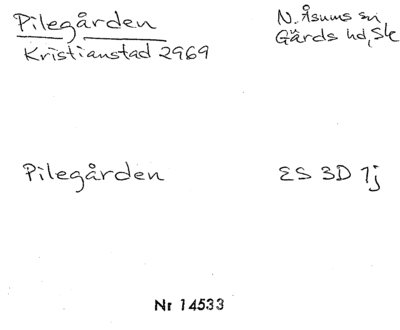 Pilegården
N. Åsums sn
Kristianstad 2969
Gärds hd, Sk
Pilegården
ES 3D 1j
Nr 14533